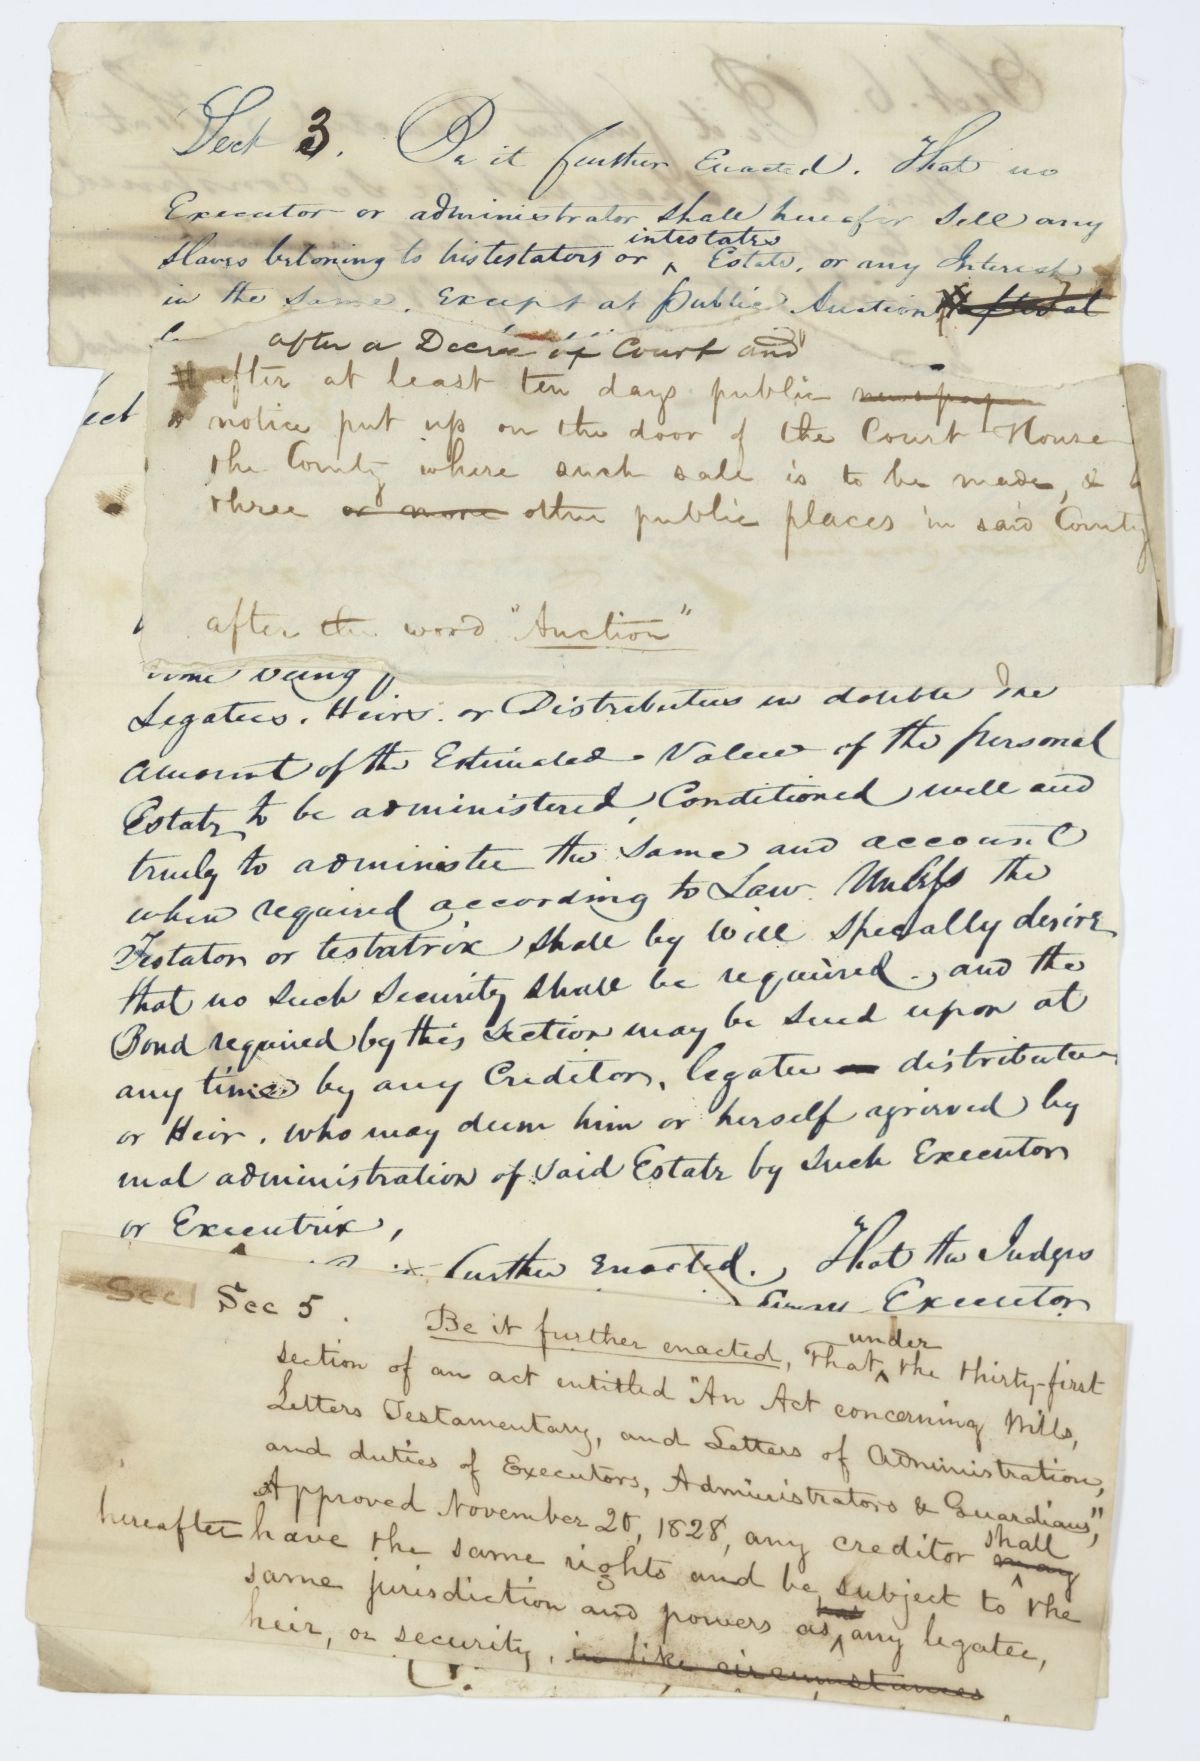 Sect 3. Be it further Enacted. That no
Executor or administrator shall hereafer Sell any
intestates
Slaves beloning to his testators or ^ Estate, or any Interest
in the Same. Except at public Auction after at
after a Decree of Court and
after at least ten days public newspap
notice put up on the door of the Court House
the County where such sale is to be made, &
three or more other public places in said County
ect
after the word "Auction"
some being
Legatees. Heirs. or Distributees in double the
amount of the Estimated Value of the personal
Estate to be administered, Conditioned well and
truely to administer the Same and account
when required according to Law. Unless the
Testator or testatrix shall by Will specially desire
that no Such Security shall be required, and the
Bond required by this Section may be Sued upon at
any time by any Creditor, legatee distributee
or Heir. who may deem him or herself agrieved by
mal administration of Said Estate by Such Executor
or Executrix,
further Enacted. That the Judges
Executor
Sec Sec 5. Be it further enacted, That ^ the thirty-first
under
section of an act entitled "An Act concerning Wills,
Letters Testamentary, and Letters of Administration,
and duties of Executors, Administrators & Guardians,"
Approved November 20, 1828, any creditor may ^
shall
hereafter have the same rights and be subject to the
same jurisdiction and powers as ^ any legatee,
has
heir, or security, in like circumstances